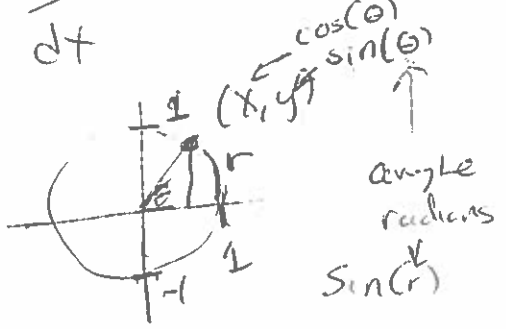 dt
cos(θ)
sin(θ)
(x, y)
1
r
1
-1
angle
radians
Sin(r)